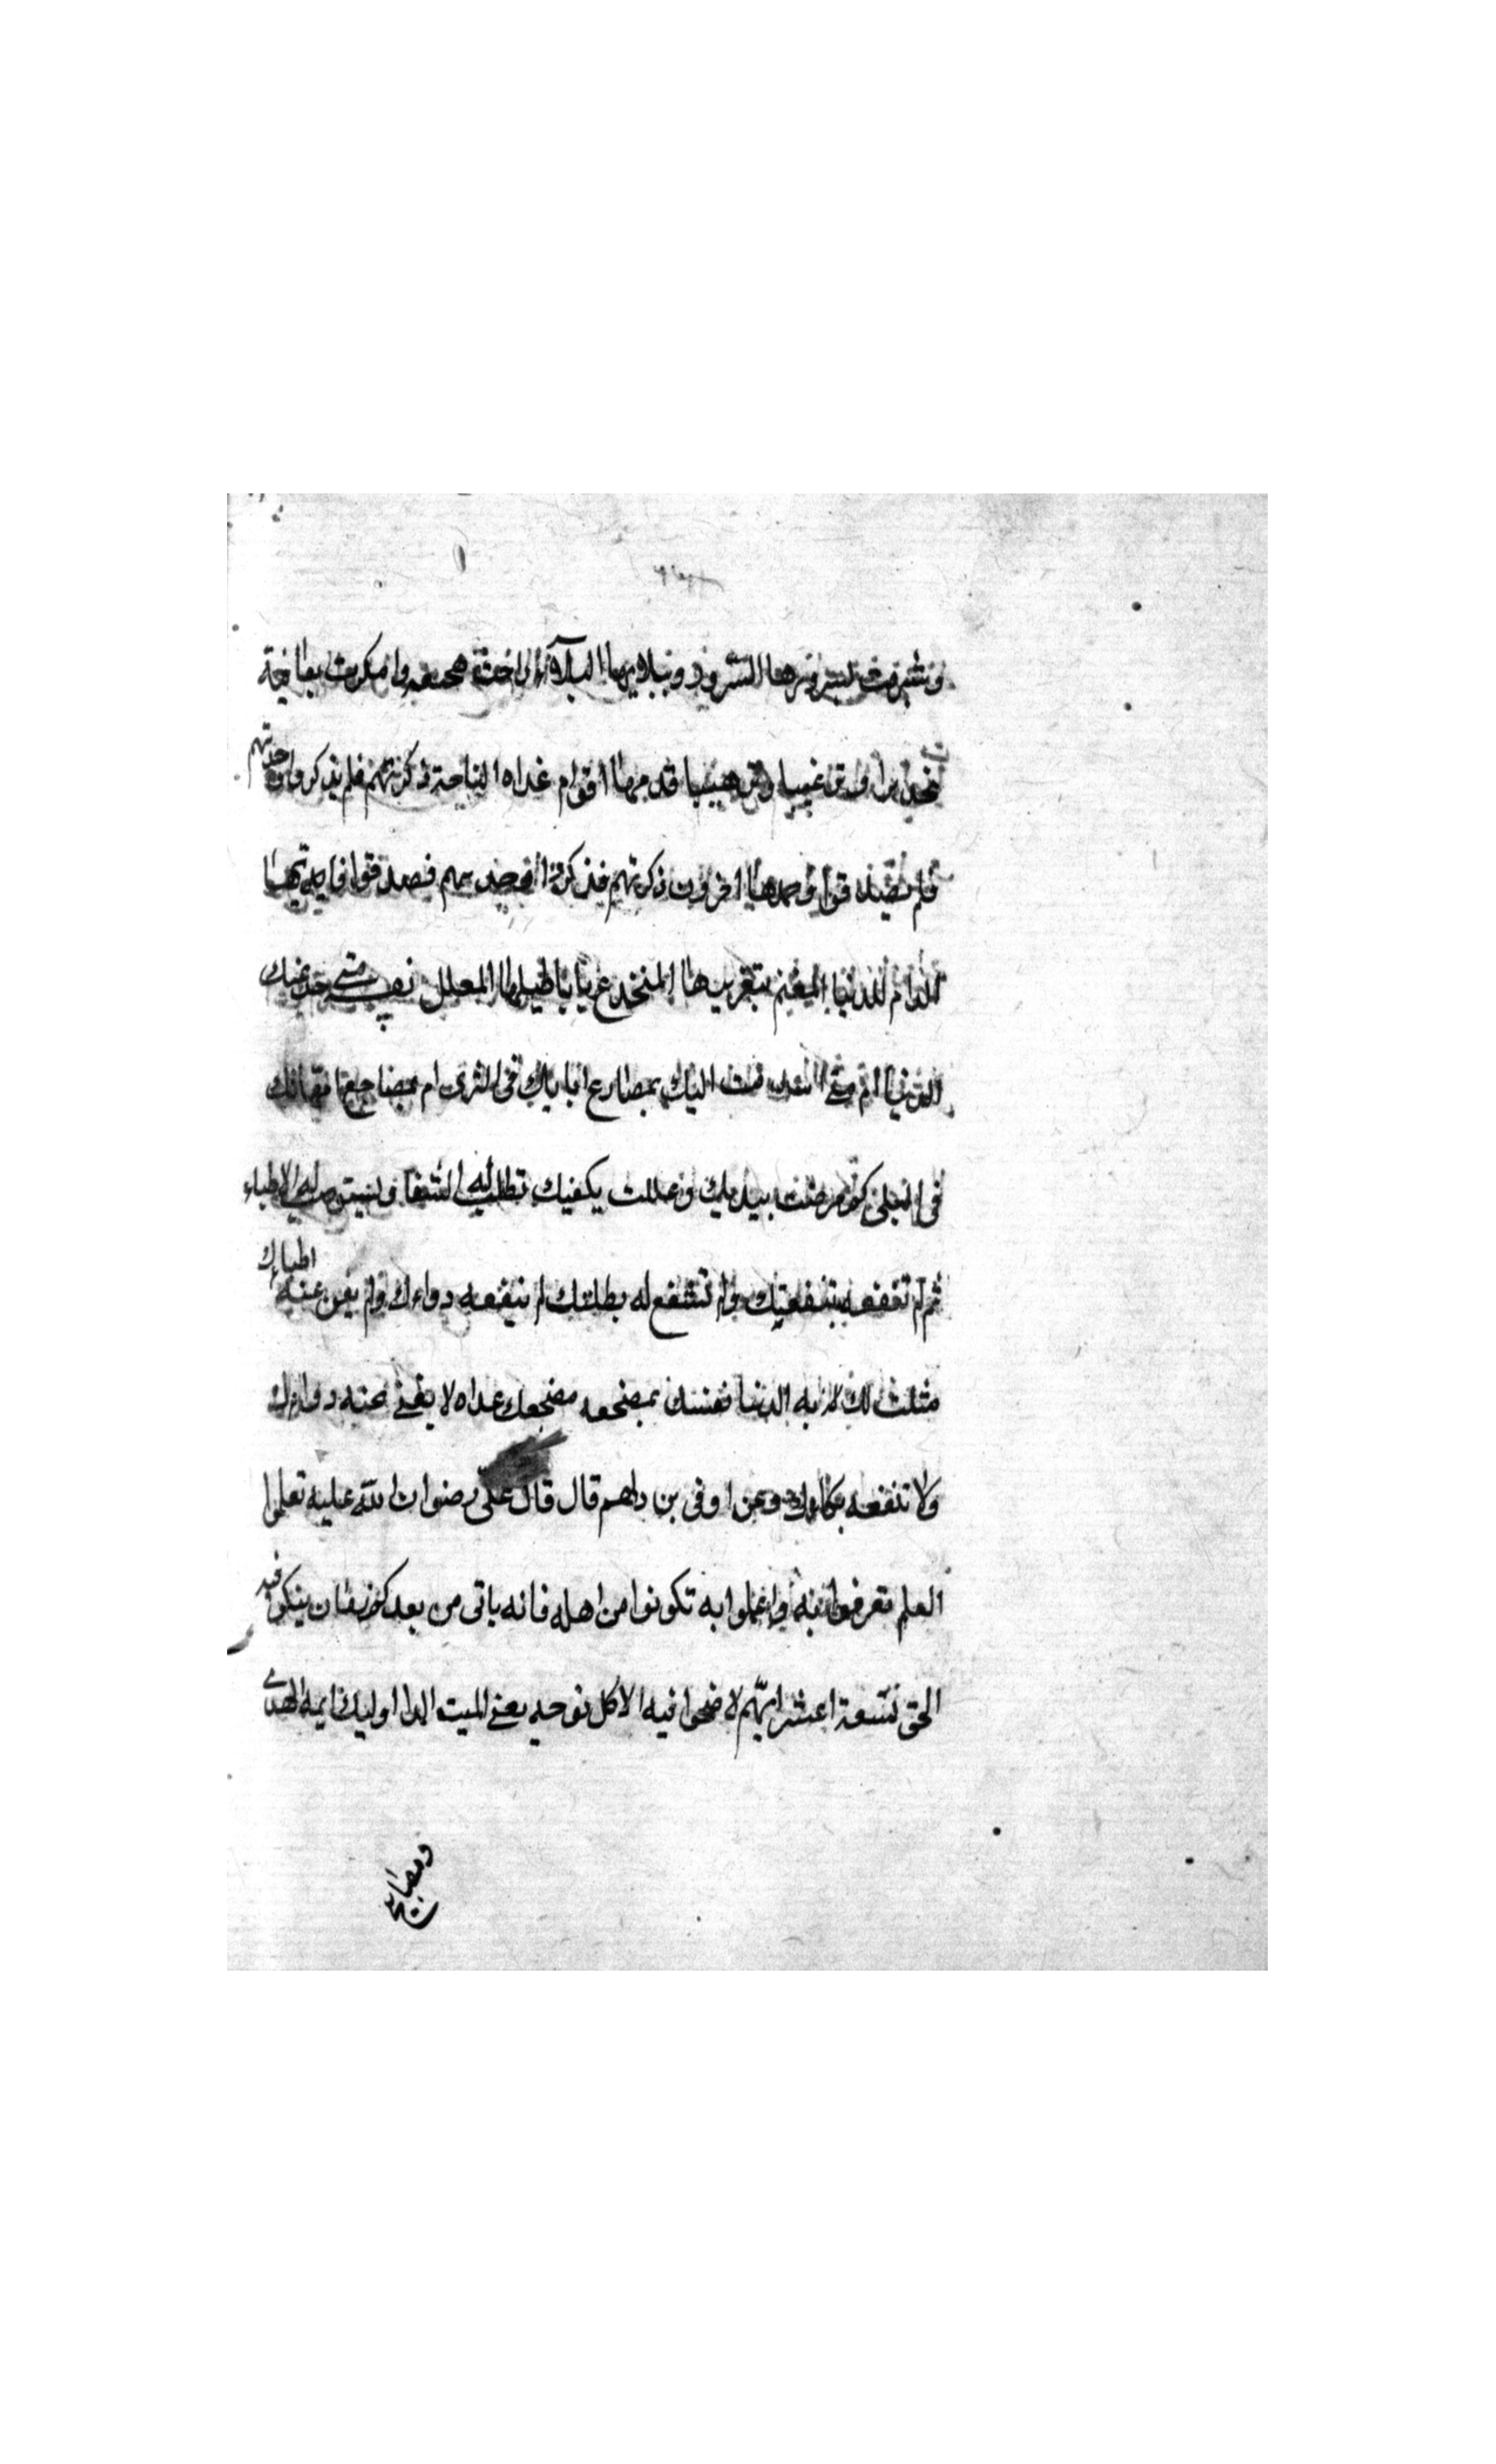 وشوقت بسرورها السرور وببلائها البلاء راحت بفجيعة وابتكرت بعافية
تحذيرا وترغيبا وترهيبا فذمها اقوام غداه الندامة ذكرتهم فلم يذكروا وحدثهم
فلم يصدقوا وحمدها اخرون ذكرتهم فذكروا وحدثهم فصدقوا فايها
الذام للدنيا المغتر بتغريرها المنخدع باباطيلها المعلل نفسه متى خدعتك
الدنيا ام متى استذمت اليك بمصارع ابايك فى الثرى ام بمضاجع امهاتك
فى البلى كم مرضت بيديك وعللت بكفيك تطلب له الشفا وتستوصف له الاطباء
ثم لم تنفعه بشفقتك ولم تشفع له بطلبتك لم ينفعه دواءك ولم يغن عنه اطباءك
مثلت لك به الدنيا نفسك بمضجعه مضجعك غداه لا يغنى عنه دواءك
ولا تنفعه بكاءك وعن اوفى بن دلهم قال قال على رضوان الله عليه تعلموا
العلم تعرفوا به واعملوا به تكونوا من اهله فانه ياتى من بعدكم زمان ينكر فيه
الحق تسعة اعشرايهم لا ينجوا فيه الا كل نومه يعنى الميت الدا اوليك ايمه الهدى
ومصابيح